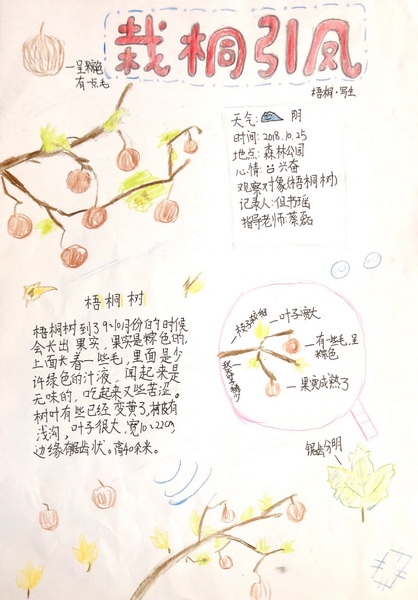 栽桐引凤
一呈棕色
有一点毛
梧桐·写生
天气: 阴
时间: 2018.10.25
地点: 森林公园
心情: 兴奋
观察对象(梧桐树)
记录人: 但书瑶
指导老师: 蔡磊
梧桐树
梧桐树到了9~10月份的时候
会长出果实，果实是棕色的，
上面长着一些毛，里面是少
许绿色的汁液，闻起来是
无味的，吃起来又些苦涩。
树叶有些已经变黄了，
浅沟，叶子很大，宽10~22cm，
边缘锯齿状。高40余米。
枝子较粗
叶子
一有一些毛，呈
棕色
果实成熟了
锯齿分明